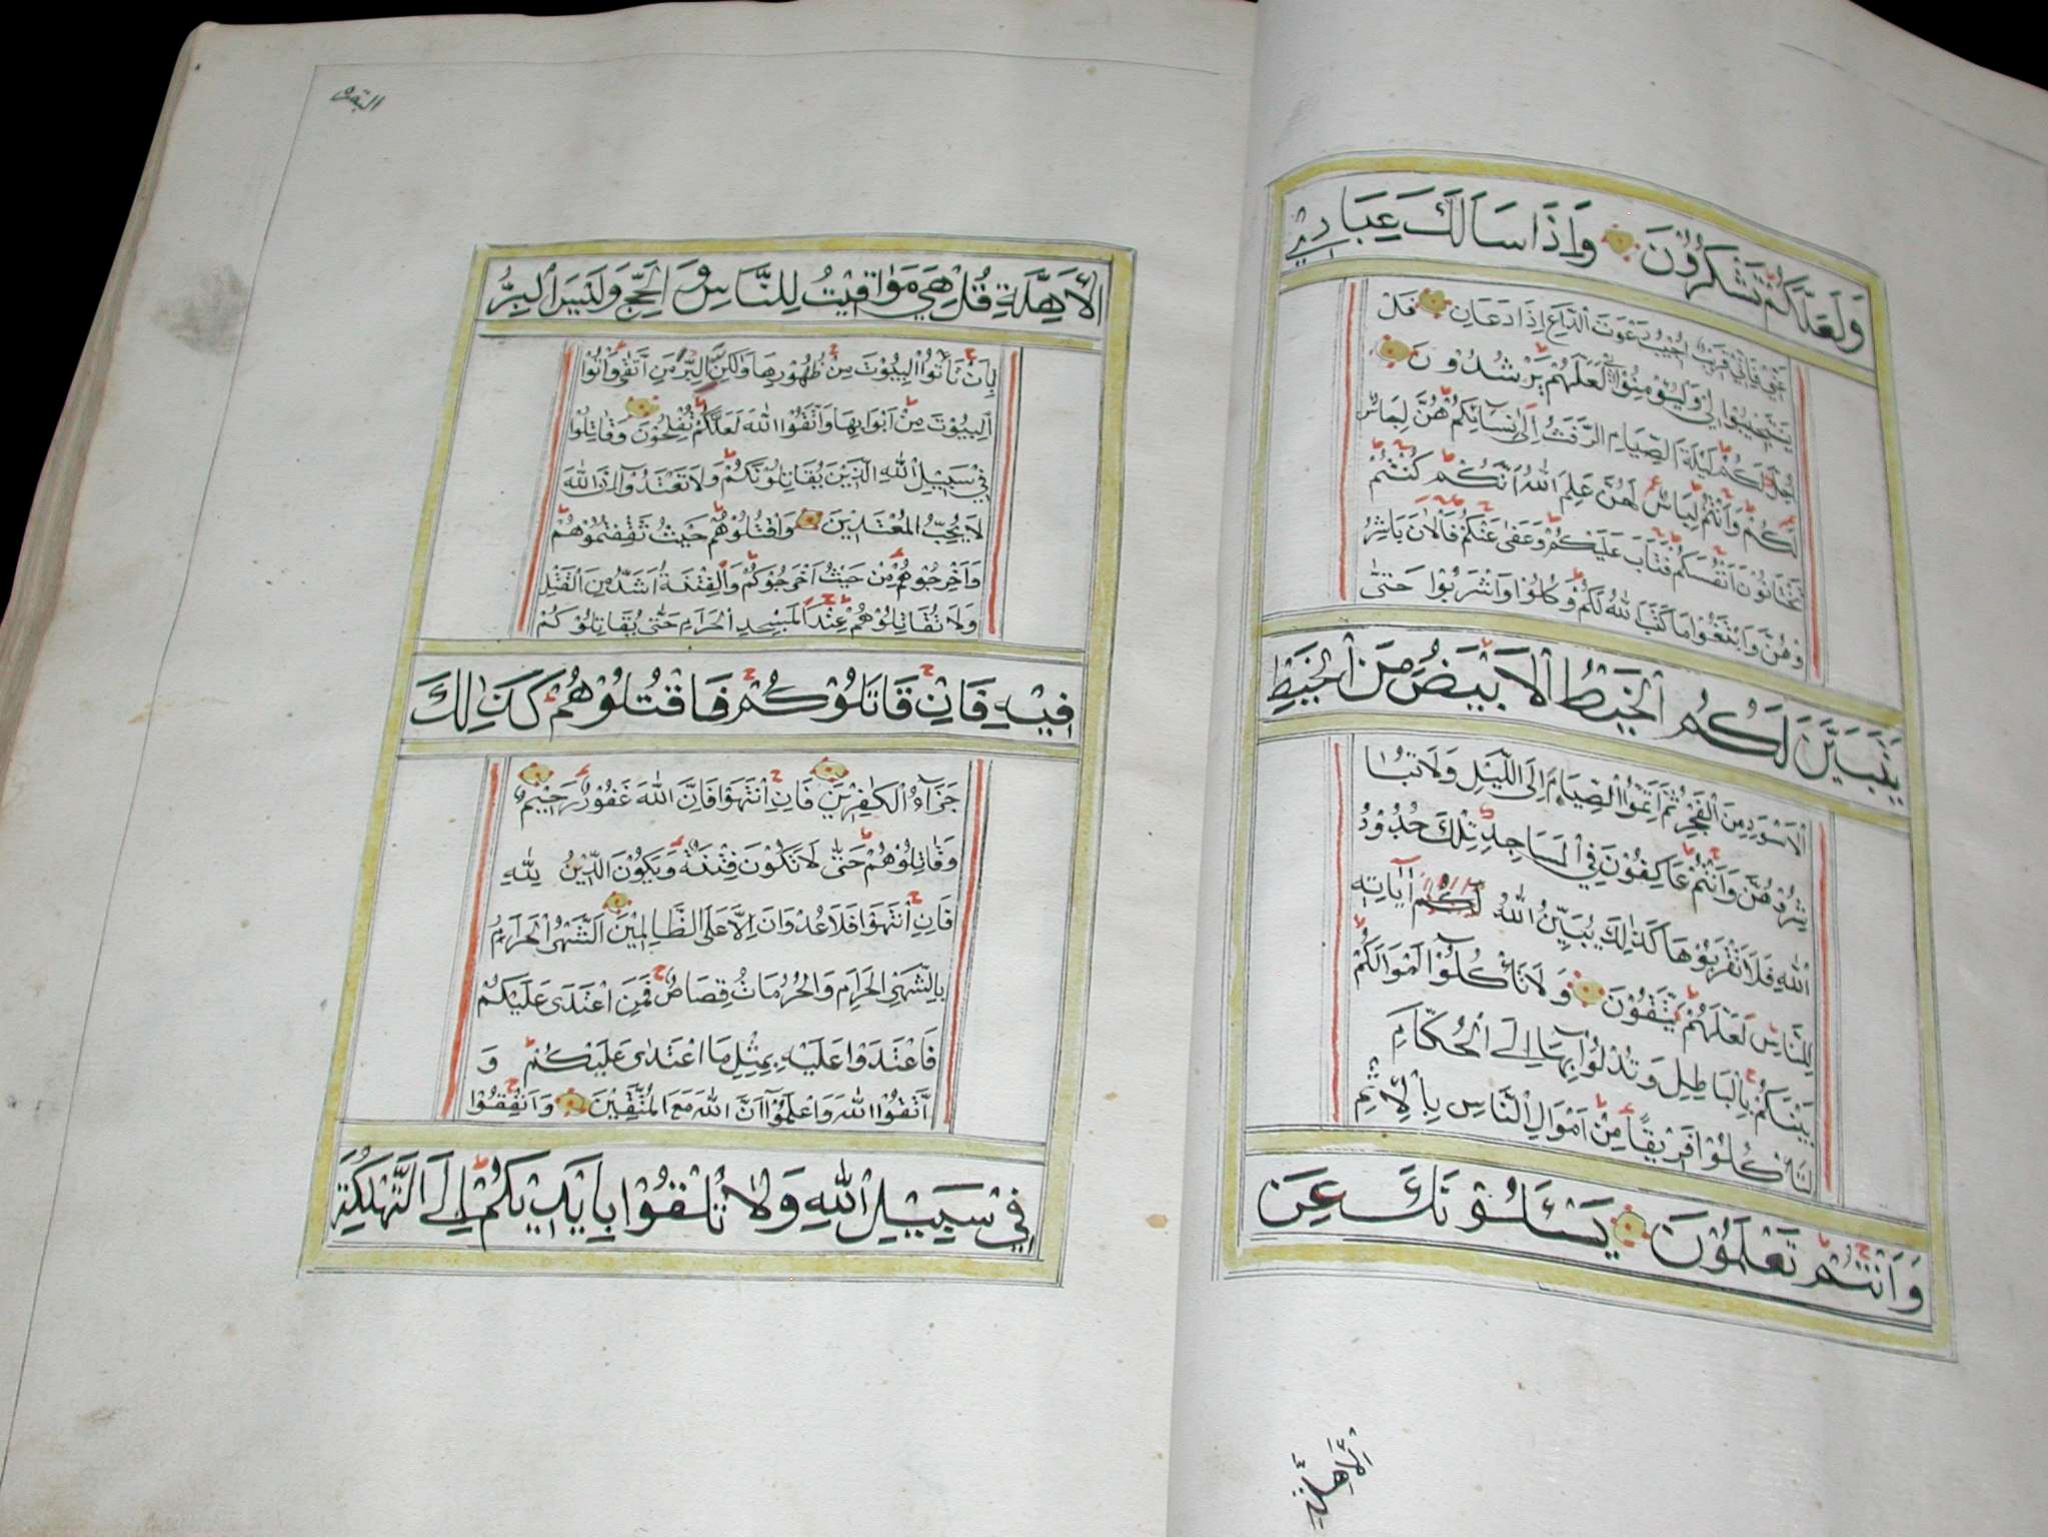 وَلَعَلَّكُمْ تَشْكُرُوْنَ وَاِذَا سَاَلَكَ عِبَادِيْ
عَنِّيْ فَاِنِّيْ قَرِيْبٌ اُجِيْبُ دَعْوَتَ الدَّاعِ اِذَا دَعَانِ فَلْ
يَسْتَجِيْبُوْا لِيْ وَلْيُؤْمِنُوْا بِيْ لَعَلَّهُمْ يَرْشُدُوْنَ
اُحِلَّ لَكُمْ لَيْلَةَ الصِّيَامِ الرَّفَثُ اِلٰى نِسَآئِكُمْ هُنَّ لِبَاسٌ
لَكُمْ وَاَنْتُمْ لِبَاسٌ لَهُنَّ عَلِمَ اللّٰهُ اَنَّكُمْ كُنْتُمْ
تَخْتَانُوْنَ اَنْفُسَكُمْ فَتَابَ عَلَيْكُمْ وَعَفٰى عَنْكُمْ فَالْاٰنَ بَاشِرُ
وْهُنَّ وَابْتَغُوْا مَا كَتَبَ اللّٰهُ لَكُمْ وَكُلُوْا وَاشْرَبُوْا حَتّٰى
يَتَبَيَّنَ لَكُمُ الْخَيْطُ الْاَبْيَضُ مِنَ الْخَيْطِ
الْاَسْوَدِ مِنَ الْفَجْرِ ثُمَّ اَتِمُّوا الصِّيَامَ اِلَى اللَّيْلِ وَلَا تُبَا
شِرُوْهُنَّ وَاَنْتُمْ عَاكِفُوْنَ فِي الْمَسَاجِدِ تِلْكَ حُدُوْدُ
اللّٰهِ فَلَا تَقْرَبُوْهَا كَذٰلِكَ يُبَيِّنُ اللّٰهُ لَكُمْ اٰيَاتِهٖ
لِلنَّاسِ لَعَلَّهُمْ يَتَّقُوْنَ وَلَا تَأْكُلُوْٓا اَمْوَالَكُمْ
بَيْنَكُمْ بِالْبَاطِلِ وَتُدْلُوْا بِهَآ اِلَى الْحُكَّامِ
لِتَأْكُلُوْا فَرِيْقًا مِنْ اَمْوَالِ النَّاسِ بِالْاِثْمِ
وَاَنْتُمْ تَعْلَمُوْنَ يَسْئَلُوْنَكَ عَنِ
البقرة
الْاَهِلَّةِ قُلْ هِيَ مَوَاقِيْتُ لِلنَّاسِ وَالْحَجِّ وَلَيْسَ الْبِرُّ
بِاَنْ تَأْتُوا الْبُيُوْتَ مِنْ ظُهُوْرِهَا وَلٰكِنَّ الْبِرَّ مَنِ اتَّقٰى وَأْتُوا
الْبُيُوْتَ مِنْ اَبْوَابِهَا وَاتَّقُوا اللّٰهَ لَعَلَّكُمْ تُفْلِحُوْنَ وَقَاتِلُوْا
فِيْ سَبِيْلِ اللّٰهِ الَّذِيْنَ يُقَاتِلُوْنَكُمْ وَلَا تَعْتَدُوْٓا اِنَّ اللّٰهَ
لَا يُحِبُّ الْمُعْتَدِيْنَ وَاقْتُلُوْهُمْ حَيْثُ ثَقِفْتُمُوْهُمْ
وَاَخْرِجُوْهُمْ مِنْ حَيْثُ اَخْرَجُوْكُمْ وَالْفِتْنَةُ اَشَدُّ مِنَ الْقَتْلِ
وَلَا تُقَاتِلُوْهُمْ عِنْدَ الْمَسْجِدِ الْحَرَامِ حَتّٰى يُقَاتِلُوْكُمْ
فِيْهِ فَاِنْ قَاتَلُوْكُمْ فَاقْتُلُوْهُمْ كَذٰلِكَ
جَزَآءُ الْكٰفِرِيْنَ فَاِنِ انْتَهَوْا فَاِنَّ اللّٰهَ غَفُوْرٌ رَحِيْمٌ
وَقَاتِلُوْهُمْ حَتّٰى لَا تَكُوْنَ فِتْنَةٌ وَيَكُوْنَ الدِّيْنُ لِلّٰهِ
فَاِنِ انْتَهَوْا فَلَا عُدْوَانَ اِلَّا عَلَى الظَّالِمِيْنَ اَلشَّهْرُ الْحَرَامُ
بِالشَّهْرِ الْحَرَامِ وَالْحُرُمَاتُ قِصَاصٌ فَمَنِ اعْتَدٰى عَلَيْكُمْ
فَاعْتَدُوْا عَلَيْهِ بِمِثْلِ مَا اعْتَدٰى عَلَيْكُمْ وَ
اتَّقُوا اللّٰهَ وَاعْلَمُوْٓا اَنَّ اللّٰهَ مَعَ الْمُتَّقِيْنَ وَاَنْفِقُوْا
فِيْ سَبِيْلِ اللّٰهِ وَلَا تُلْقُوْا بِاَيْدِيْكُمْ اِلَى التَّهْلُكَةِ